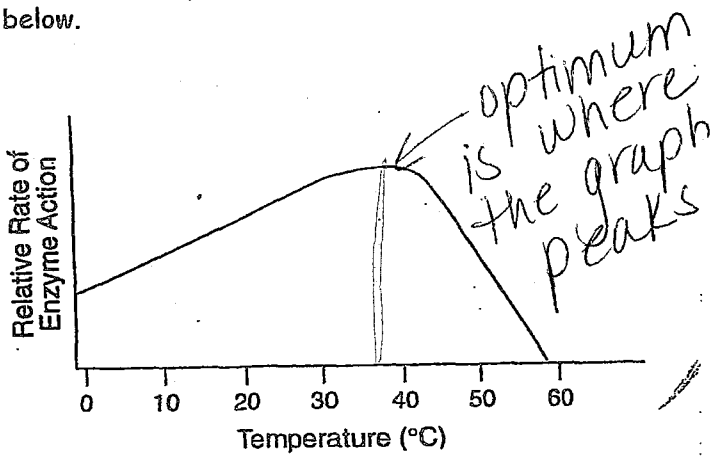 below.
optimum
is where
the graph
peaks
Relative Rate of
Enzyme Action
0 10 20 30 40 50 60
Temperature (°C)